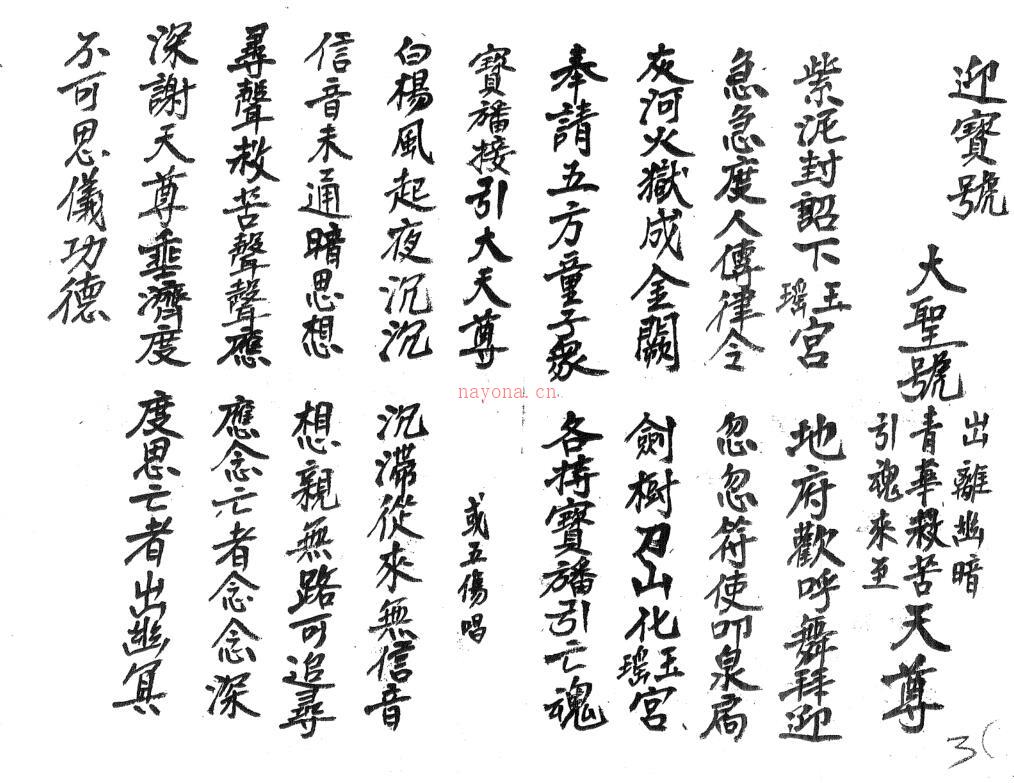 迎寶號
大聖號 出離幽暗 青華救苦 引魂來至 天尊
紫泥封詔下瑶玉宮 地府歡呼舞拜迎
急急度人傳律令 忽忽符使叩泉扃
灰河火獄成金闕 劍樹刀山化瑶玉宮
奉請五方童子眾 各持寶旛引亡魂
寶旛接引大天尊 或五傷唱
白楊風起夜沉沉 沉滯從來無信音
信音未通暗思想 想親無路可追尋
尋聲救苦聲聲應 應念亡者念念深
深謝天尊垂濟度 度思亡者出幽冥
不可思儀功德
3(
nayona.cn